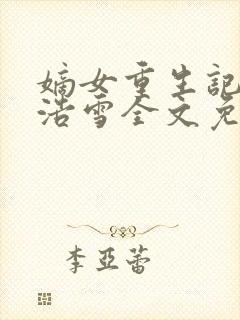 嫡女重生記
浩雪全文免
李亞蕾